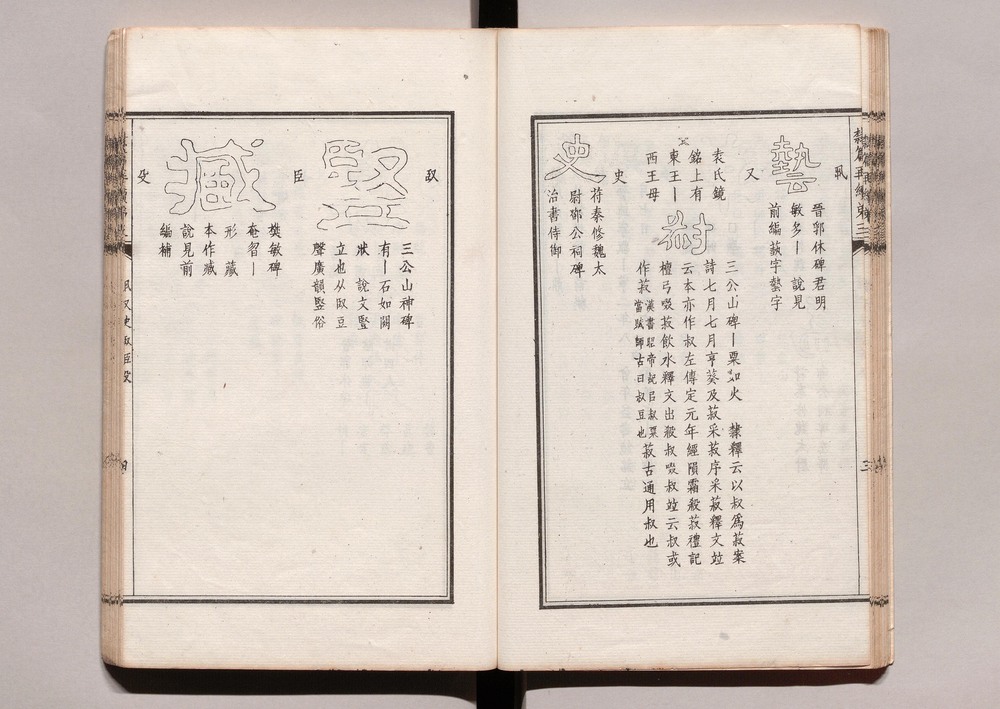 隸篇再續第三
丮
藝
晉郭休碑君明
敏多丨 說見
前編蓺字藝字
又
袁氏鏡
銘上有
東王丨
西王母
叔
三公山碑丨粟如火 隸釋云以叔爲菽案
詩七月七月亨葵及菽采菽序采菽釋文竝
云本亦作叔左傳定元年經隕霜殺菽禮記
檀弓啜菽飲水釋文出殺叔啜叔竝云叔或
作菽 漢書昭帝紀㠯叔粟
當賦師古曰叔豆也 菽古通用叔也
史
史
苻秦修魏太
尉鄧公祠碑
治書侍御丨
臤
豎
三公山神碑
有丨石如闕
狀 說文豎
立也从臤豆
聲廣韻竪俗
臣
臧
樊敏碑
奄曶丨
形 藏
本作臧
說見前
編補
殳
丮又史臤臣殳
四